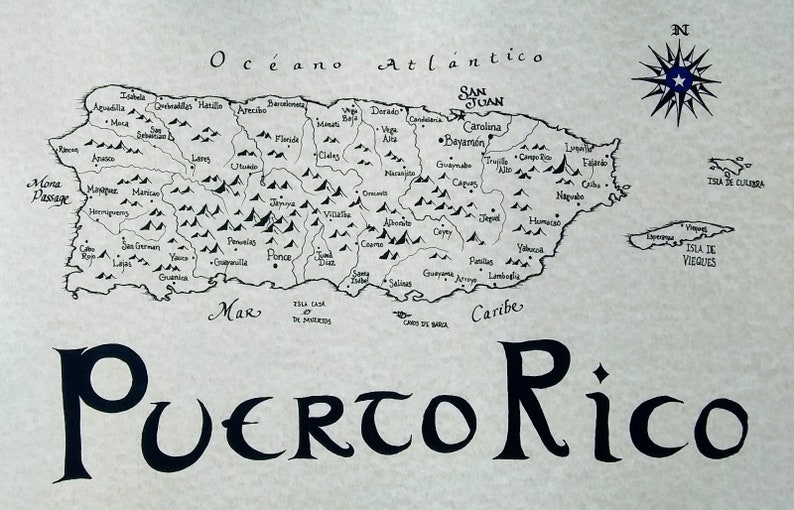 N
Océano Atlántico
SAN
JUAN
Isabela
Quebradillas
Hatillo
Arecibo
Barceloneta
Aguadilla
Moca
San
Sebastian
Manati
Vega
Baja
Dorado
Vega
Alta
Candelaria
Carolina
Bayamón
Florida
Ciales
Rincon
Anasco
Lares
Utuado
Naranjito
Guaynabo
Trujillo
Alto
Campo Rico
Luquillo
Fajardo
Ceiba
Naguabo
Mona
Passage
Mayaguez
Maricao
Hormigueros
Jayuya
Orocovis
Caguas
Villalba
Aibonito
Cayey
Humacao
Cabo
Rojo
San German
Lajas
Yauco
Guanica
Penuelas
Guayanilla
Ponce
Juana
Diaz
Coamo
Santa
Isabel
Salinas
Guayama
Arroyo
Patillas
Yabucoa
Lamboglia
ISLA DE CULEBRA
Esperanza
Vieques
ISLA DE
VIEQUES
Mar
Caribe
ISLA CAJA
DE MUERTOS
CAYOS DE BARCA
PUERTO RICO